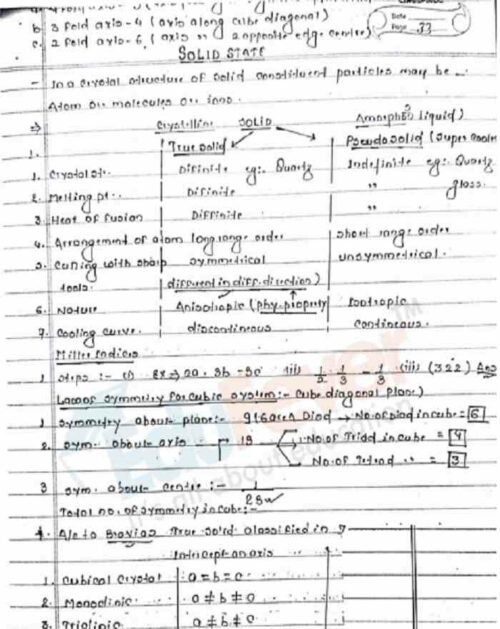 b. 3 fold axis - 4 (axis along cube diagonal)
c. 2 fold axis - 6. (axis 2 opposite edge center)
Page 33
SOLID STATE
- In a crystal structure of solid constituent particles may be -
Atom or molecules or ions.
⇒ Crystalline SOLID Amorphos liquid)
1. True solid Pseudo solid (super cooled
1. Crystal st. Difinite eg:- Quartz Indefinite eg:- Quartz
2. Melting pt. Difinite " glass.
3. Heat of fusion Diffinite "
4. Arrangement of atom long range order short range order
5. Cutting with sharp symmetrical unsymmetrical.
tools. different in diff. direction)
6. Nature Anisotropic (phy. property) Isotropic
7. Cooling curve. discontineous Contineous.
Miller Indices
1 steps :- (i) 2x ⇒ 2a. 3b - 3c (ii) 1/2 1/3 - 1/3 (iii) (3 2 2) Ans
symmetry for cubic system:- Cube diagonal plane)
1 Symmetry about plane:- 9 Diad → No. of Diad in cube = 6
2. sym. about axis :- 13 No. of Triad in cube = 4
No. of Tetrad " = 3
3 sym. about centre :- 1
Total no. of symmetry in cube :- 23
4. A/c to Bravias True solid classified in 7
Intercept on axis
1. Cubical Crystal a = b = c
2. Monoclinic a ≠ b ≠ c
3. Triclinic a ≠ b ≠ c